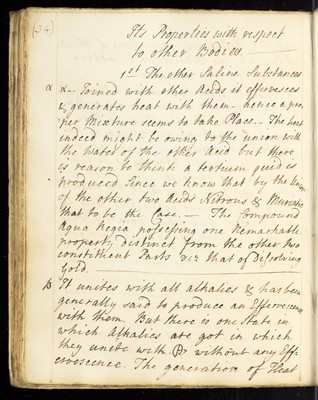 (34)
Its Properties with respect
to other Bodies.
1st The other Saline Substances
α α- Joined with other Acids it effervesces
& generates heat with them - hence a pro=
per Mixture seems to take Place. - The heat
indeed might be owing to the union with
the Water of the other Acid but there
is reason to think a tertium quid is
produced Since we know that by the Union
of the other two Acids Nitrous & Muriatic
that to be the Case. — The Compound
Aqua Regia possessing one Remarkable
property distinct from the other two
constituent Parts viz that of Dissolving
Gold.
β It unites with all alkalies & has been
generally said to produce an Effervescence
with them. But there is one state in
which Alkalies are got in which
they unite with without any Eff-
ervescence. The generation of Heat